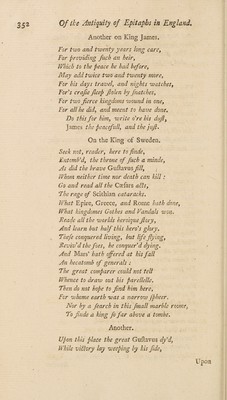 352 Of the Antiquity of Epitaphs in England.
Another on King James.
For two and twenty years long care,
For providing such an heir,
Which to the peace he had before,
May add twice two and twenty more,
For his days travel, and nights watches,
For's crasie sleep stolen by snatches,
For two fierce kingdoms wound in one,
For all he did, and meant to have done,
Do this for him, write o're his dust,
James the peacefull, and the just.
On the King of Sweden.
Seek not, reader, here to finde,
Entomb'd, the throne of such a minde,
As did the brave Gustavus fill,
Whom neither time nor death can kill:
Go and read all the Cæsars acts,
The rage of Scithian cataracts.
What Epire, Greece, and Rome hath done,
What kingdomes Gothes and Vandals won.
Reade all the worlds heroique story,
And learn but half this hero's glory.
These conquered living, but life flying,
Reviv'd the foes, he conquer'd dying.
And Mars' hath offered at his fall
An hecatomb of generals:
The great comparer could not tell
Whence to draw out his parellelle.
Then do not hope to find him here,
For whome earth was a narrow spheer.
Nor by a search in this small marble roome,
To finde a king so far above a tombe.
Another.
Upon this place the great Gustavus dy'd,
While victory lay weeping by his side,
Upon